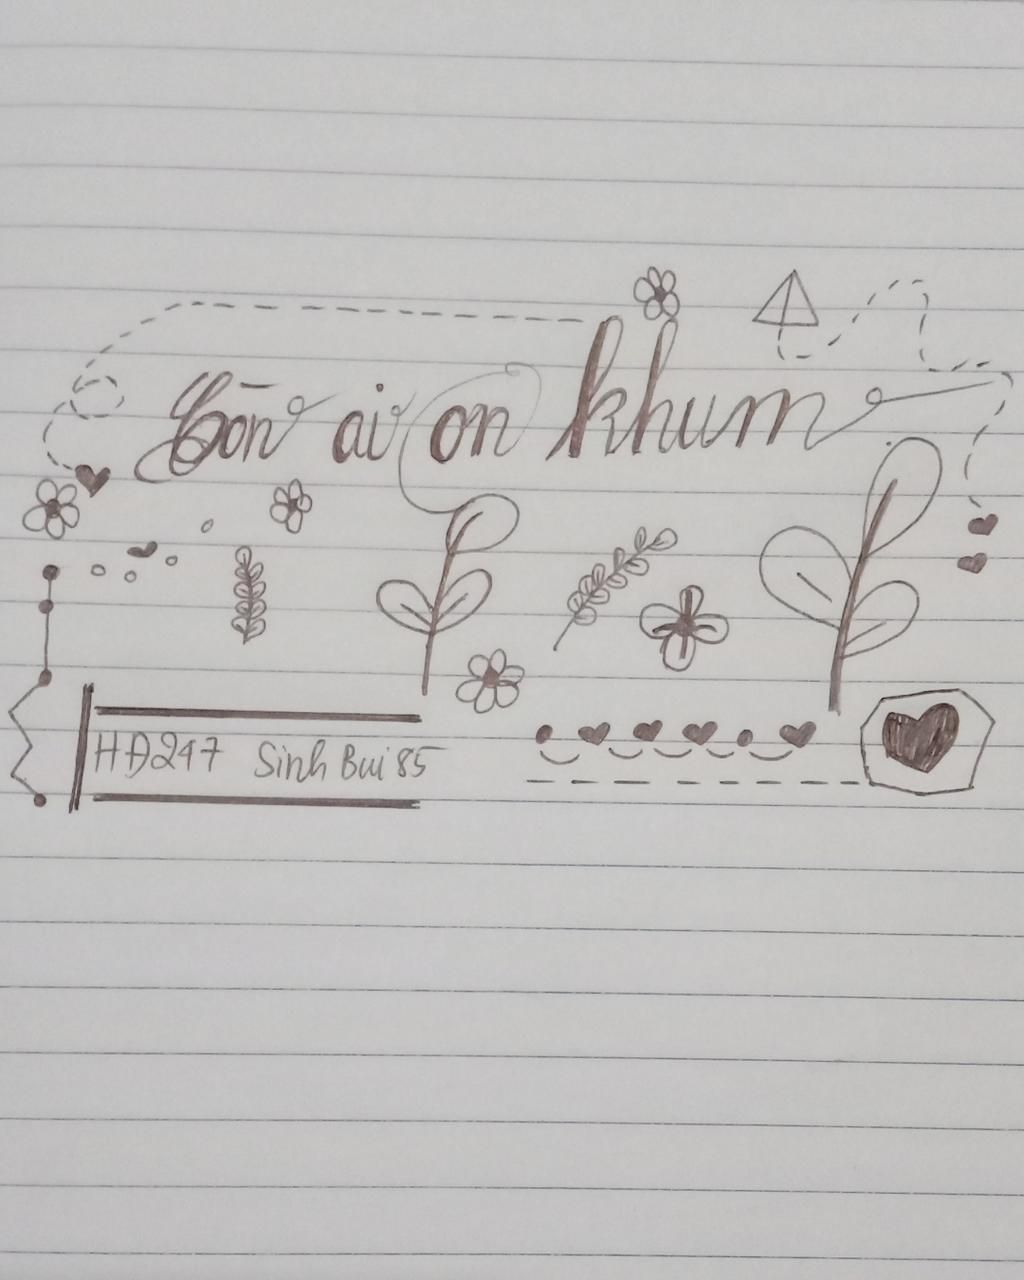 Còn ai on khum
HĐ247 Sinh Bui 85